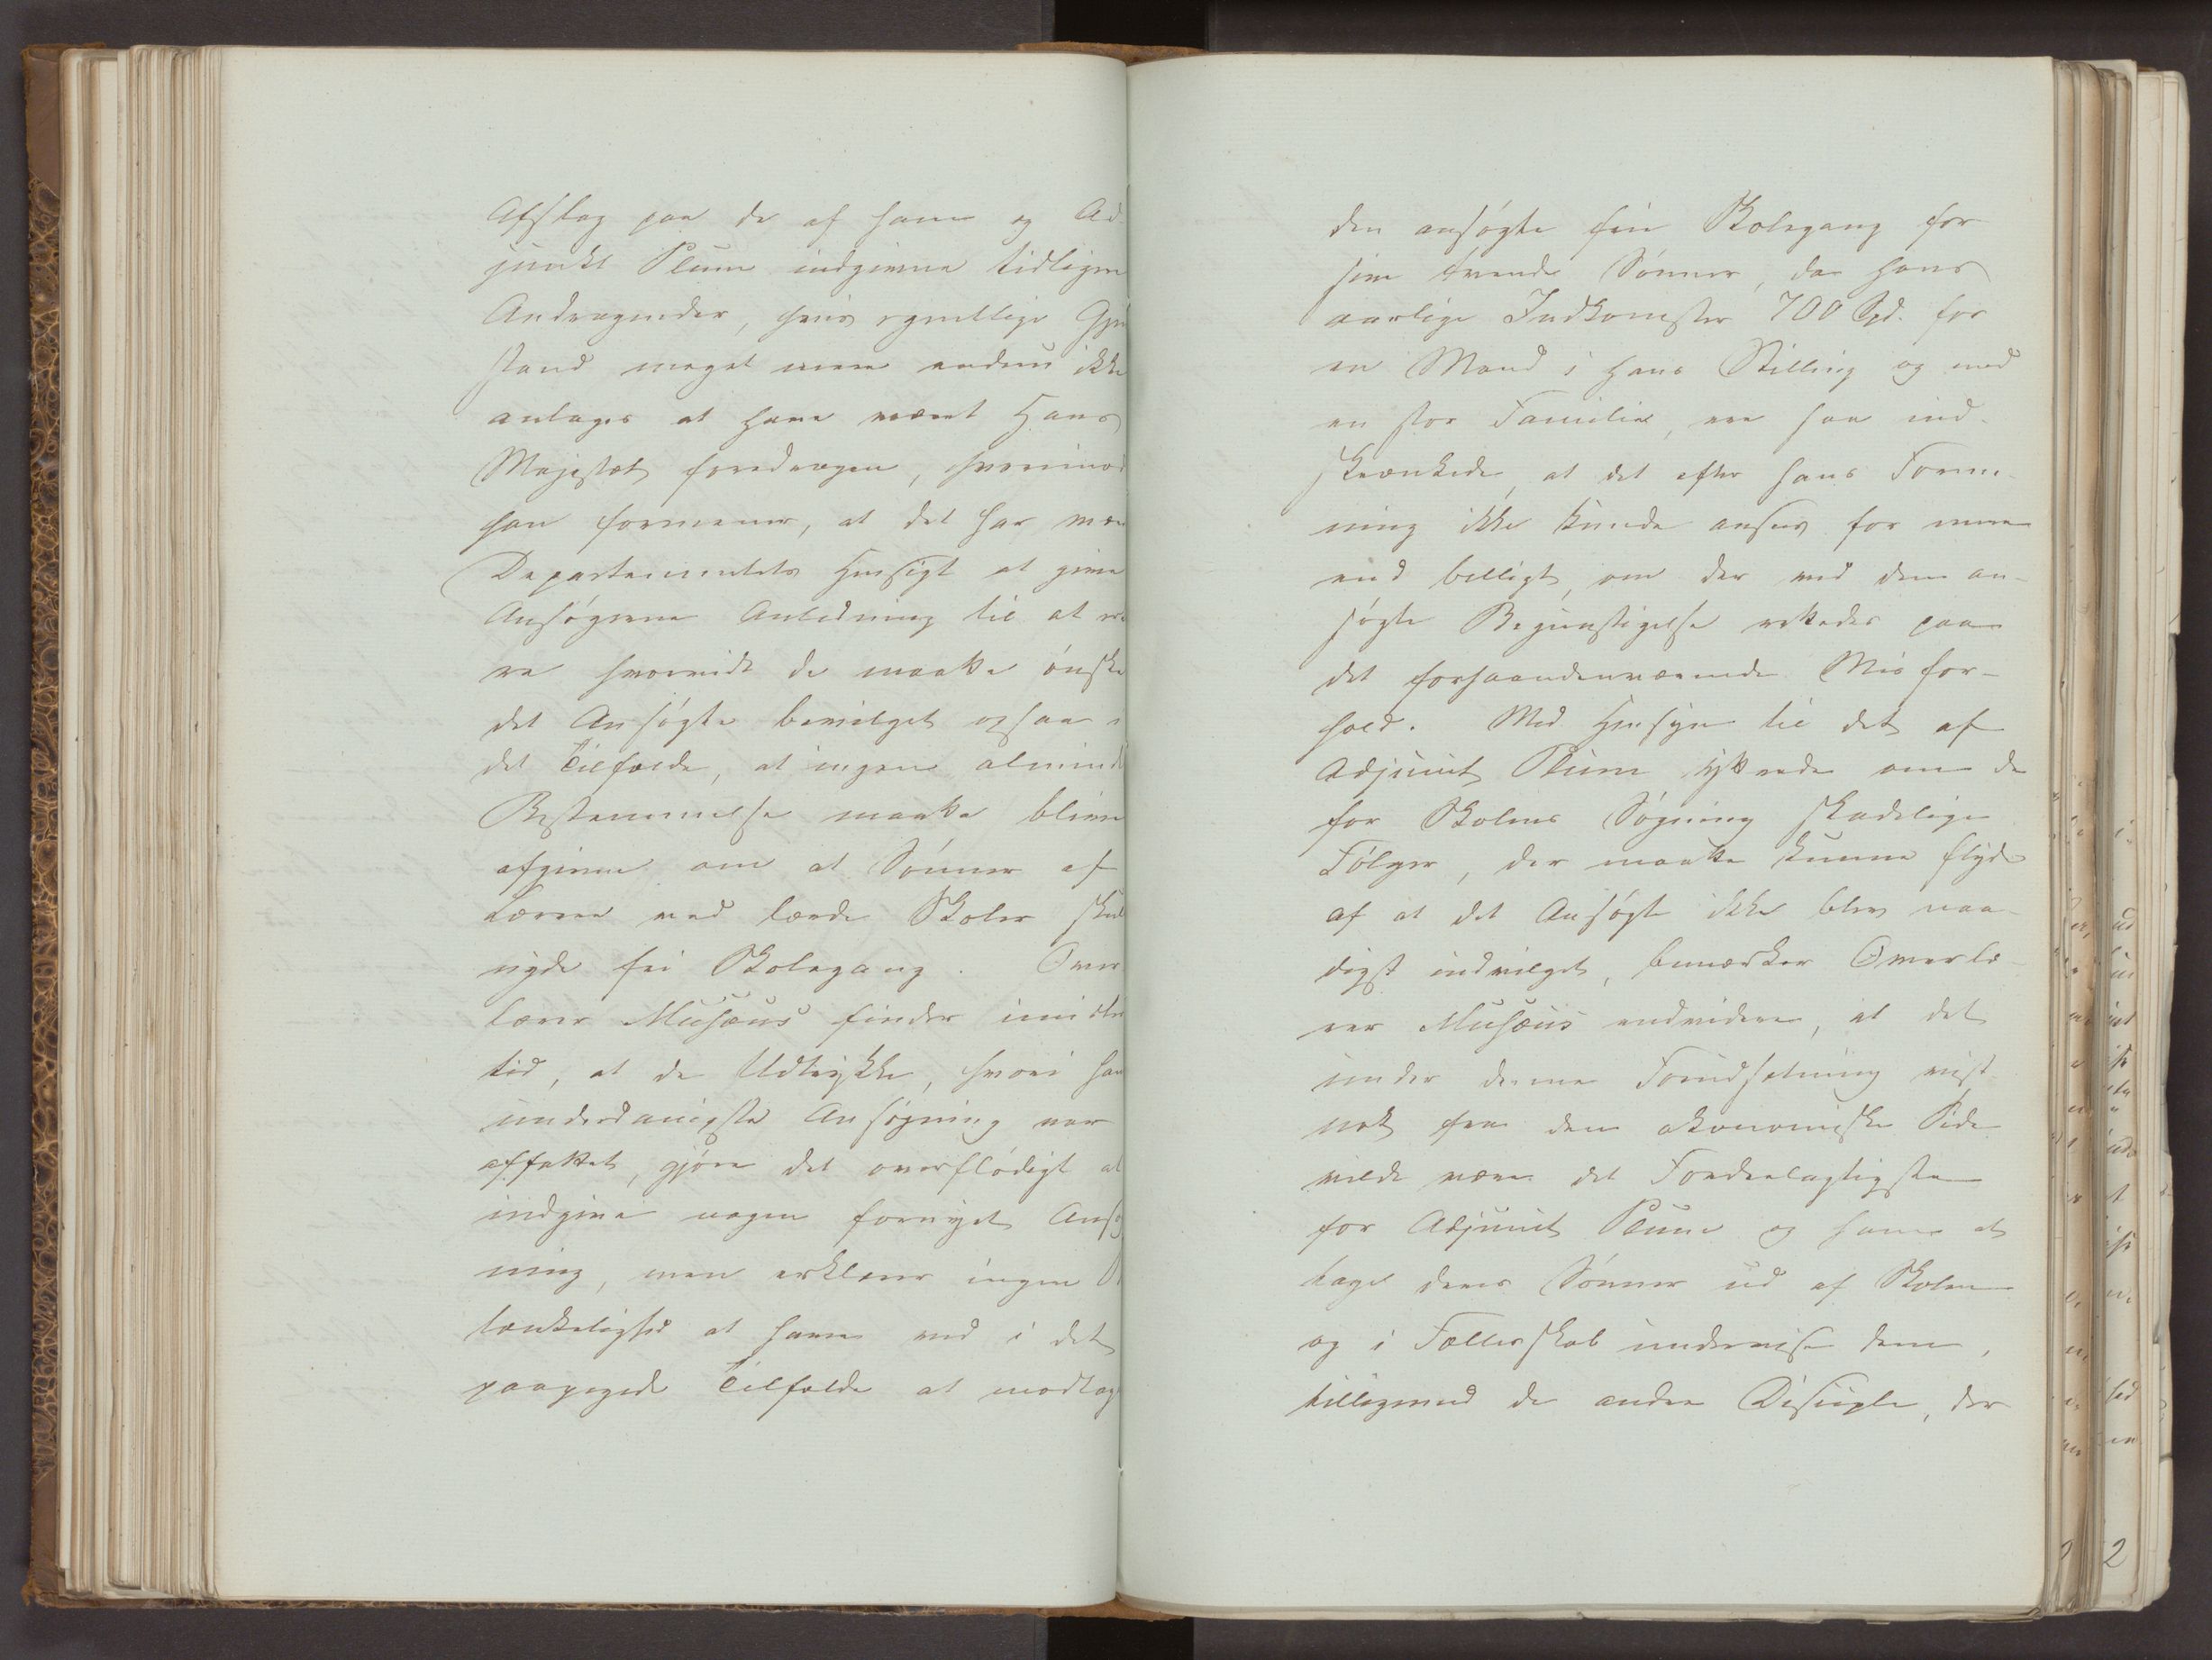 Afslag paa de af ham og Ad
junkt Plum indgivne tidligere
Andragender, hvis egentlige Gjen
stand meget mere endnu ikke
antages at have været Hans
Majestæt foredragen, hvorimod
han formener, at det har været
Departementets Hensigt at give
Ansøgerne Anledning til at er
re hvorvidt de maatte ønske
det Ansøgte bevilget ogsaa i
det Tilfælde, at ingen almind
Bestemmelse maatte blive
afgiven om at Sønner af
Lærere ved lærde Skoler skul
nyde fri Skolegang. Over
lærer Musæus finder imidler
tid, at de Udtrykke, hvori han
underdanigste Ansøgning var
affattet, gjøre det overflødigt at
indgive nogen fornyet Ansøg
ning, men erklærer ingen B
tænkelighed at have ved i det
paapegede Tilfælde at modtage
den ansøgte frie Skolegang for
sine tvende Sønner, da hans
aarlige Indkomster 700 Spd. for
en Mand i hans Stilling og med
en stor Familie, ere saa ind-
skrænkede, at det efter hans Forme-
ning ikke kunde ansees for mere
end billigt, om der ved den an-
søgte Begunstigelse rettedes paa
det forhaandenværende Misfor-
hold. Med Hensyn til det af
Adjunkt Plum yttrede om de
for Skolens Søgning skadelige
Følger, der maatte kunne flyde
af at det Ansøgte ikke blev naa-
digst indvilget, bemærker Overlæ-
rer Musæus endvidere, at det
under denne Forudsætning vist
nok fra den økonomiske Side
vilde være det Fordeelagtigste
for Adjunkt Plum og ham at
tage deres Sønner ud af Skolen
og i Fællesskab undervise dem,
tilligemed de andre Disciple, der
2